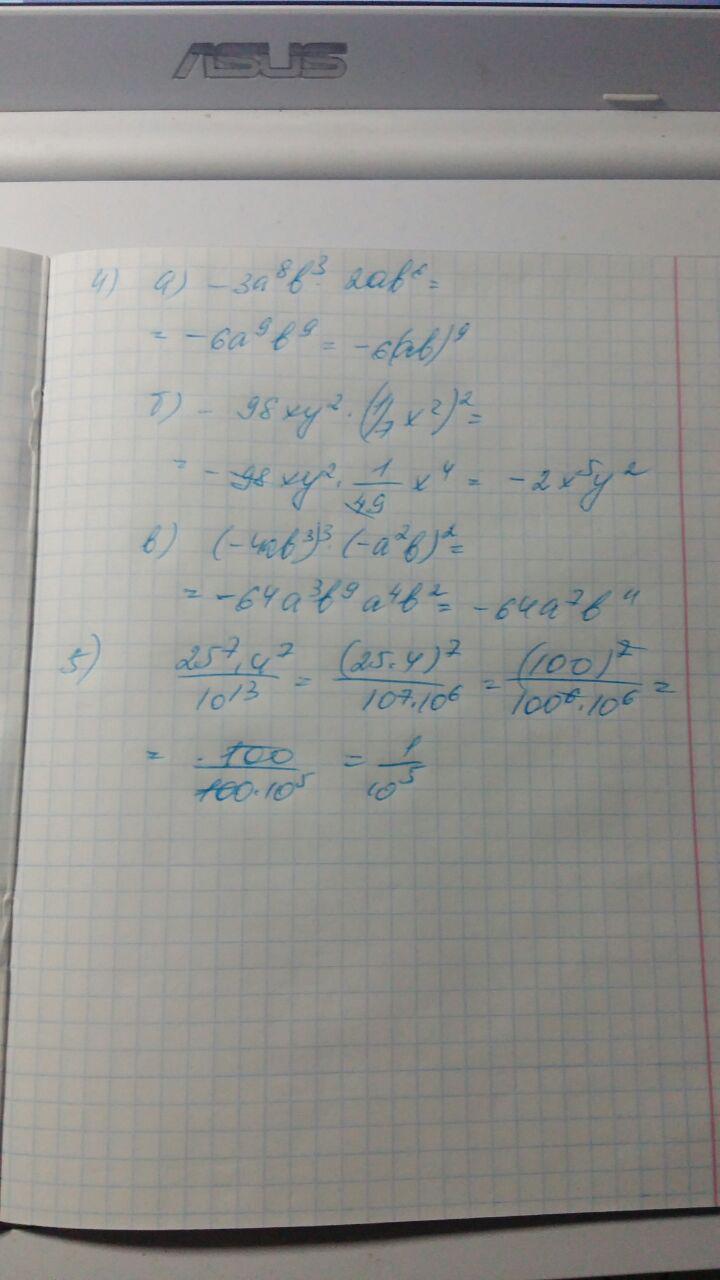 ASUS
4) а) -3a⁸b³ · 2ab⁶ =
= -6a⁹b⁹ = -6(ab)⁹
б) - 98xy² · (1/7 x²)² =
= -98xy² · 1/49 x⁴ = -2x⁵y²
в) (-4ab³)³ · (-a²b)² =
= -64a³b⁹a⁴b² = -64a⁷b⁴
5) 25⁷·4⁷/10¹³ = (25·4)⁷/10⁷·10⁶ = (100)⁷/100⁶·10⁶ =
= 100/100·10⁵ = 1/10⁵